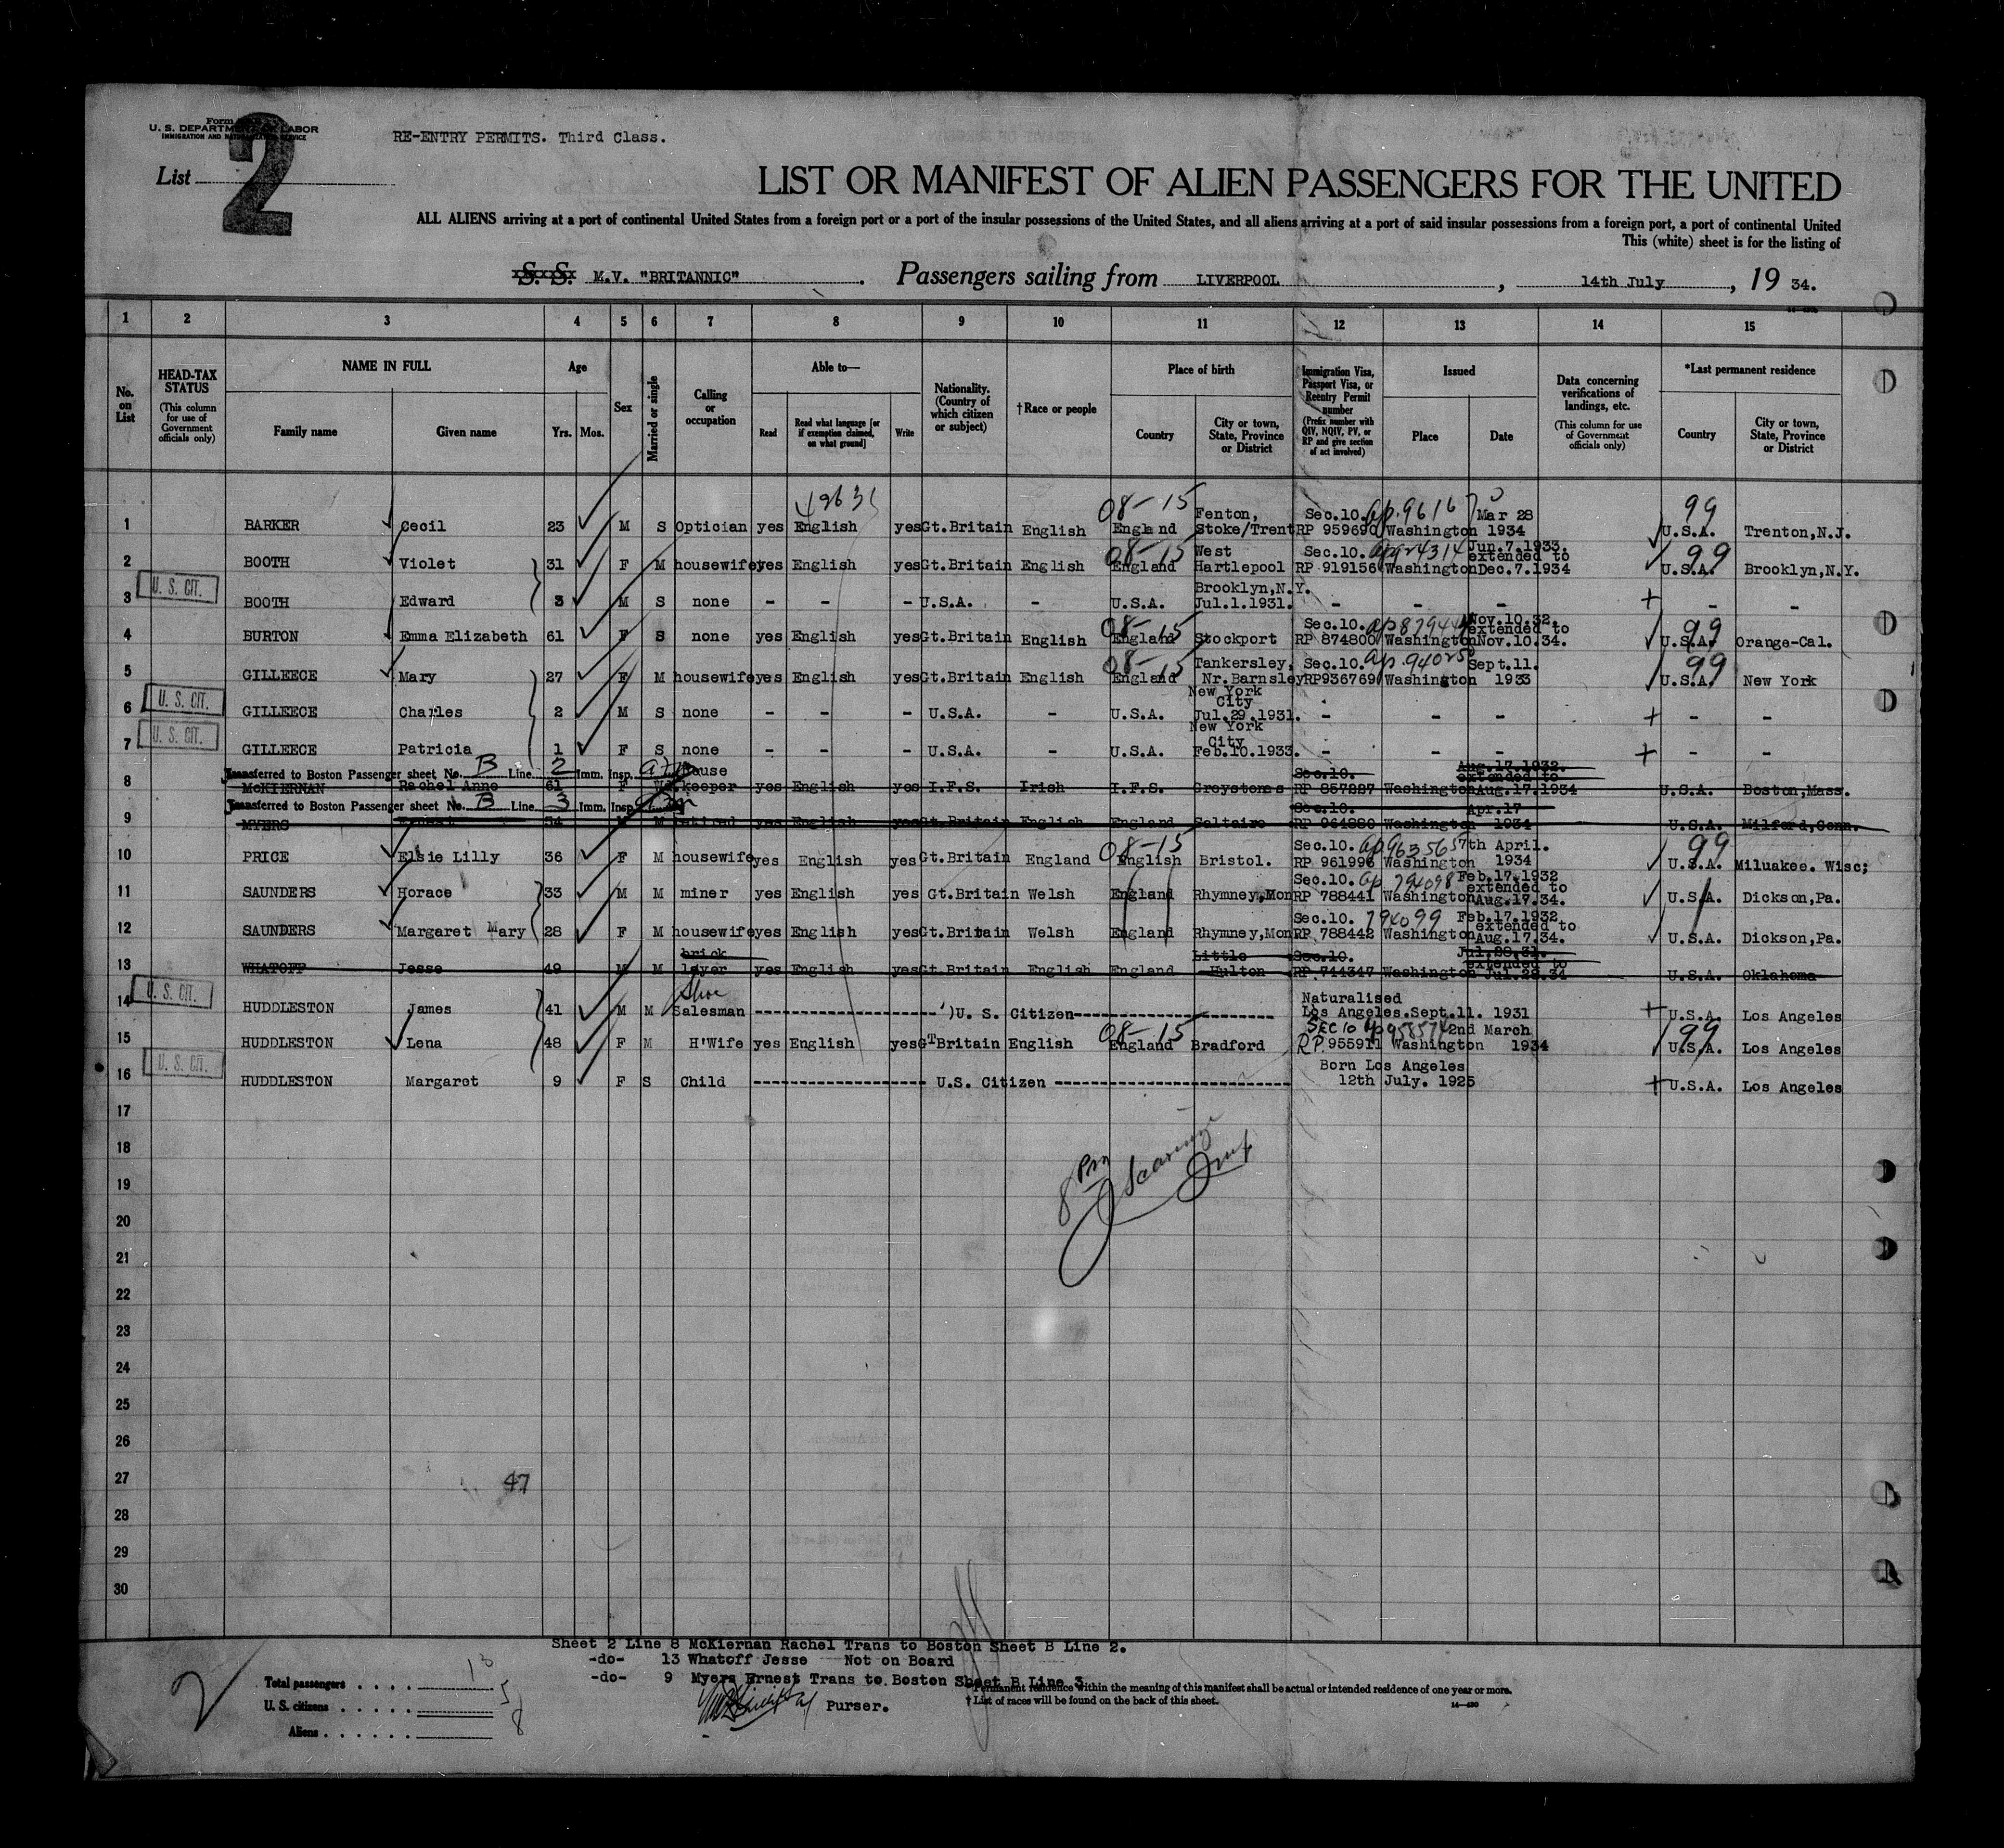 Form
U. S. DEPARTMENT OF LABOR
IMMIGRATION AND NATURALIZATION SERVICE
RE-ENTRY PERMITS. Third Class.
List
2
LIST OR MANIFEST OF ALIEN PASSENGERS FOR THE UNITED
ALL ALIENS arriving at a port of continental United States from a foreign port or a port of the insular possessions of the United States, and all aliens arriving at a port of said insular possessions from a foreign port, a port of continental United
This (white) sheet is for the listing of
S. S. M.V. "BRITANNIC". Passengers sailing from LIVERPOOL, 14th July, 19 34.
1 2 3 4 5 6 7 8 9 10 11 12 13 14 15
No. on List
HEAD-TAX STATUS (This column for use of Government officials only)
NAME IN FULL Family name Given name
Age Yrs. Mos.
Sex
Married or single
Calling or occupation
Able to— Read Read what language [or if exemption claimed, on what ground] Write
Nationality. (Country of which citizen or subject)
†Race or people
Place of birth Country City or town, State, Province or District
Immigration Visa, Passport Visa, or Reentry Permit number (Prefix number with QIV, NQIV, PV, or RP and give section of act involved)
Issued Place Date
Data concerning verifications of landings, etc. (This column for use of Government officials only)
*Last permanent residence Country City or town, State, Province or District
08-15 99
1 BARKER Cecil 23 M S Optician yes English yes Gt.Britain English England Fenton, Stoke/Trent Sec.10. RP 959690 Washington Mar 28 1934 U.S.A. Trenton,N.J.
08-15 99
2 BOOTH Violet 31 F M housewife yes English yes Gt.Britain English England West Hartlepool Sec.10. RP 919156 Washington Jun.7.1933. extended to Dec.7.1934 U.S.A. Brooklyn,N.Y.
U. S. CIT.
3 BOOTH Edward 3 M S none - - - U.S.A. - U.S.A. Brooklyn,N.Y. Jul.1.1931. - - - - -
08-15 99
4 BURTON Emma Elizabeth 61 F S none yes English yes Gt.Britain English England Stockport Sec.10. RP 874800 Washington Nov.10.32. extended to Nov.10.34. U.S.A. Orange-Cal.
08-15 99
5 GILLEECE Mary 27 F M housewife yes English yes Gt.Britain English England Tankersley, Nr.Barnsley Sec.10. RP936769 Washington Sept.11. 1933 U.S.A. New York
U. S. CIT.
6 GILLEECE Charles 2 M S none - - - U.S.A. - U.S.A. New York City Jul.29.1931. - - - - -
U. S. CIT.
7 GILLEECE Patricia 1 F S none - - - U.S.A. - U.S.A. New York City Feb.10.1933. - - - - -
Transferred to Boston Passenger sheet No. B Line 2 Imm. Insp.
8 McKIERNAN Rachel Anne 61 F Wd house keeper yes English yes I.F.S. Irish I.F.S. Greystones Sec.10. RP 857227 Washington Aug.17.1932. extended to Aug.17.1934 U.S.A. Boston,Mass.
Transferred to Boston Passenger sheet No. B Line 3 Imm. Insp.
9 MYERS Ernest 54 M M retired yes English yes Gt.Britain English England Saltaire Sec.10. RP 964880 Washington Apr.17 1934 U.S.A. Milford,Conn.
08-15 99
10 PRICE Elsie Lilly 36 F M housewife yes English yes Gt.Britain England English Bristol. Sec.10. RP 961996 Washington 7th April. 1934 U.S.A. Miluakee. Wisc;
11 SAUNDERS Horace 33 M M miner yes English yes Gt.Britain Welsh England Rhymney,Mon Sec.10. ap 794098 RP 788441 Washington Feb.17.1932 extended to Aug.17.34. U.S.A. Dickson,Pa.
12 SAUNDERS Margaret Mary 28 F M housewife yes English yes Gt.Britain Welsh England Rhymney,Mon Sec.10. 794099 RP 788442 Washington Feb.17.1932 extended to Aug.17.34. U.S.A. Dickson,Pa.
13 WHATOFF Jesse 49 M M brick layer yes English yes Gt.Britain English England Little Hulton Sec.10. RP 744347 Washington Jul.28.31. extended to Jul.28.34 U.S.A. Oklahoma
U. S. CIT.
14 HUDDLESTON James 41 M M Shoe Salesman U. S. Citizen Naturalised Los Angeles.Sept.11. 1931 U.S.A. Los Angeles
08-15 99
15 HUDDLESTON Lena 48 F M H'Wife yes English yes GTBritain English England Bradford SEC 10 RP.955911 Washington 2nd March 1934 U.S.A. Los Angeles
U. S. CIT.
16 HUDDLESTON Margaret 9 F S Child U.S. Citizen Born Los Angeles 12th July. 1925 U.S.A. Los Angeles
17
18
8 Pm
19
20
21
22
23
24
25
26
27 47
28
29
30
Sheet 2 Line 8 McKiernan Rachel Trans to Boston Sheet B Line 2.
-do- 13 Whatoff Jesse Not on Board
-do- 9 Myers Ernest Trans to Boston Sheet B Line 3
2
Total passengers . . . . 13
U. S. citizens . . . . . 5
Aliens . . . . . . 8
Purser.
*Permanent residence within the meaning of this manifest shall be actual or intended residence of one year or more.
† List of races will be found on the back of this sheet.
14—430